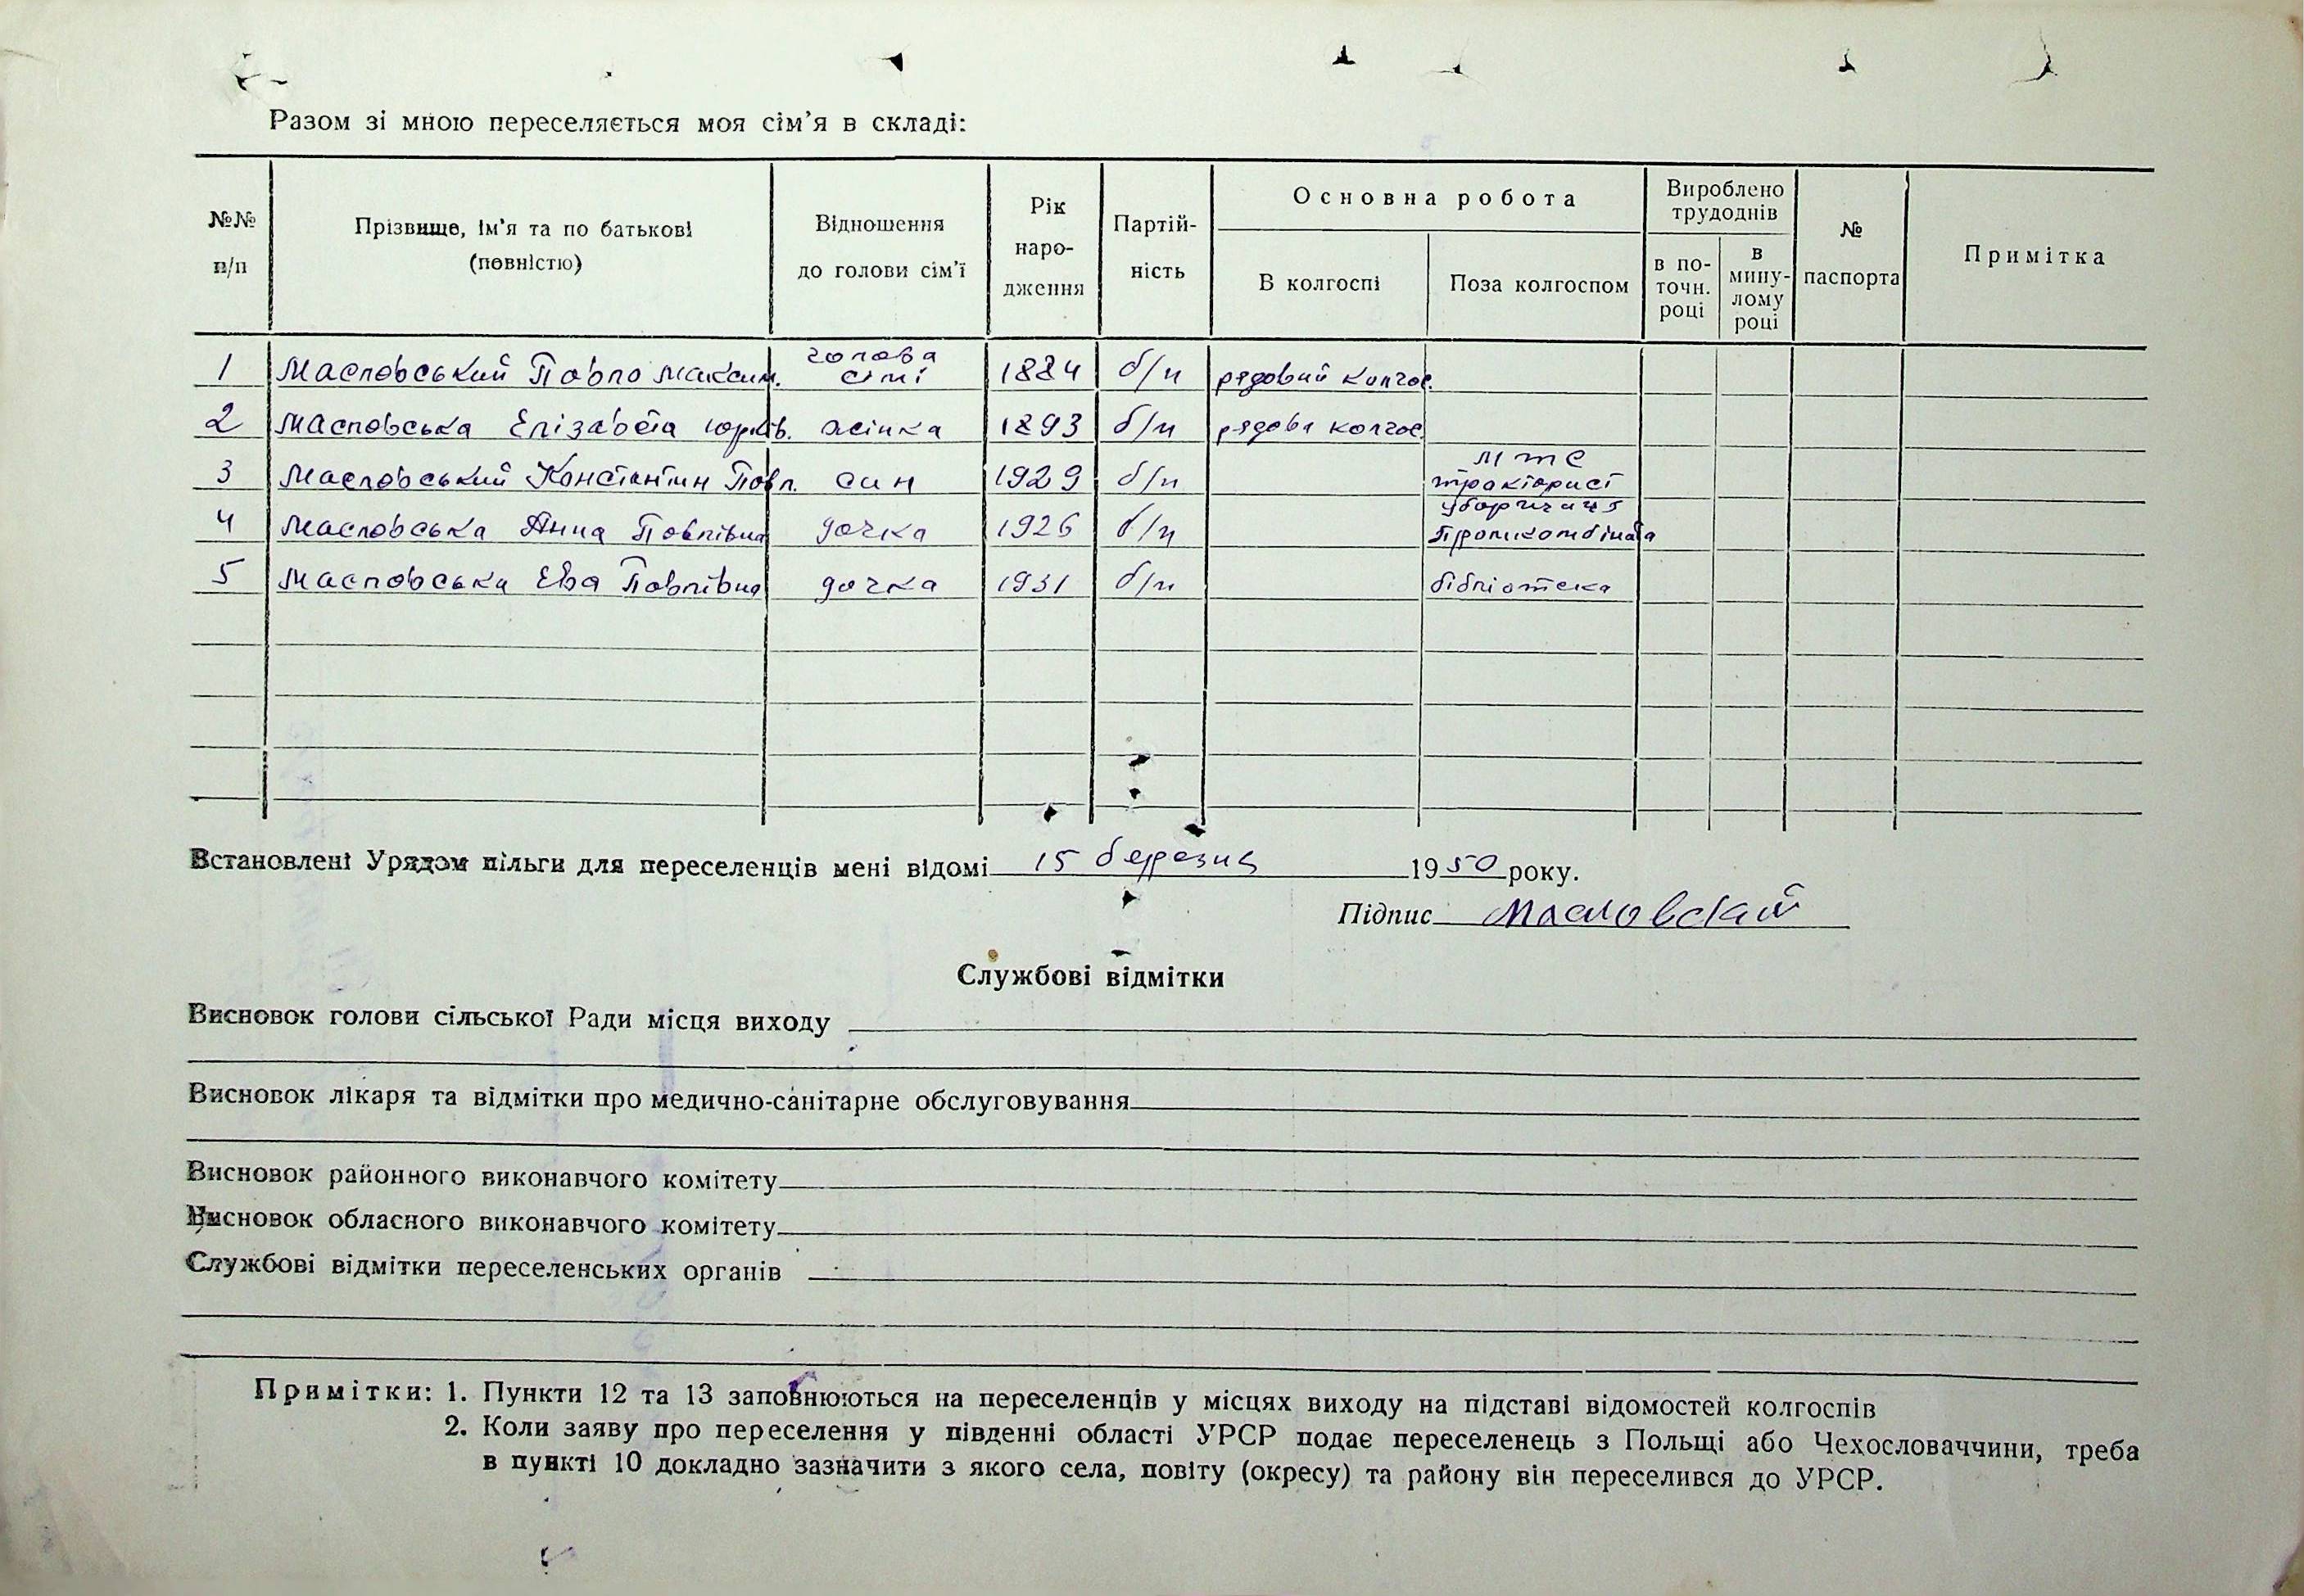 Разом зі мною переселяється моя сім'я в складі:
№№ п/п
Прізвище, ім'я та по батькові (повністю)
Відношення до голови сім'ї
Рік наро-дження
Партій-ність
Основна робота
В колгоспі
Поза колгоспом
Вироблено трудоднів
в по-точн. році
в мину-лому році
№ паспорта
Примітка
1 Масловський Павло Максим. голова сімї 1884 б/п рядовий колгос.
2 Масловська Елізавета Юрків. жінка 1893 б/п рядова колгос.
3 Масловський Константин Павл. син 1929 б/п МТС тракторист
4 Масловська Анна Павлівна дочка 1926 б/п уборщиця Промкомбіната
5 Масловська Ева Павлівна дочка 1931 б/п бібліотека
Встановлені Урядом пільги для переселенців мені відомі 15 березня 1950 року.
Підпис Масловский
Службові відмітки
Висновок голови сільської Ради місця виходу
Висновок лікаря та відмітки про медично-санітарне обслуговування
Висновок районного виконавчого комітету
Висновок обласного виконавчого комітету
Службові відмітки переселенських органів
Примітки: 1. Пункти 12 та 13 заповнюються на переселенців у місцях виходу на підставі відомостей колгоспів
2. Коли заяву про переселення у південні області УРСР подає переселенець з Польщі або Чехословаччини, треба
в пункті 10 докладно зазначити з якого села, повіту (окресу) та району він переселився до УРСР.